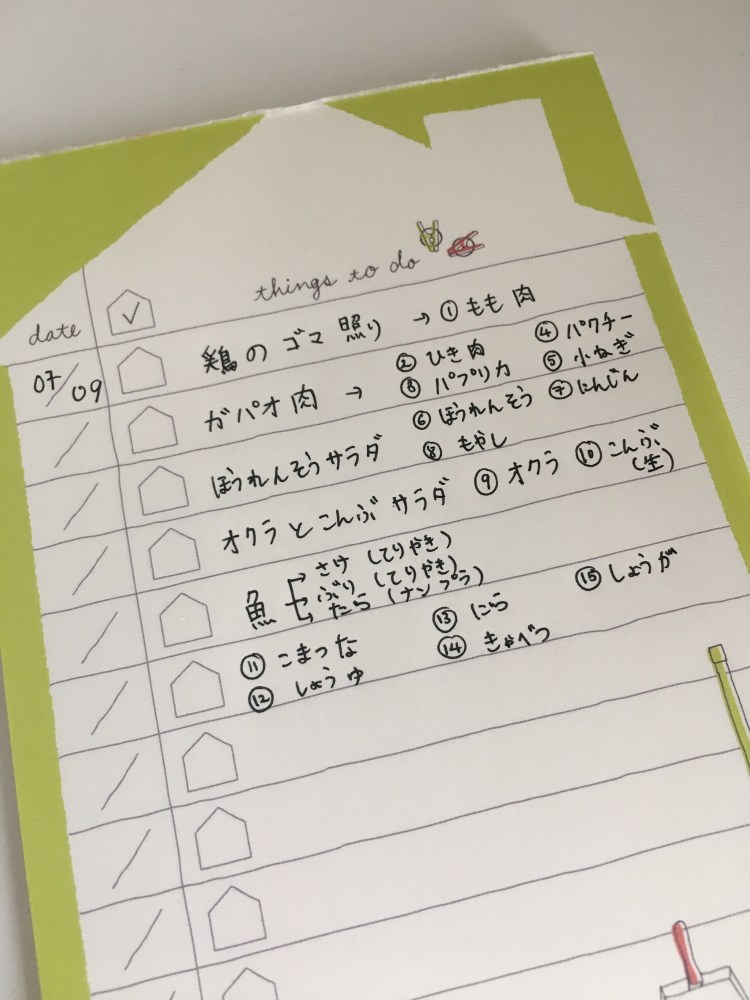 things to do
date
07/09
鶏のゴマ照り → ① もも肉
ガパオ肉 → ② ひき肉 ④ パクチー
③ パプリカ ⑤ 小ねぎ
ほうれんそうサラダ ⑥ ほうれんそう ⑦ にんじん
⑧ もやし
オクラとこんぶサラダ ⑨ オクラ ⑩ こんぶ
(生)
魚 さけ (てりやき)
ぶり (てりやき)
たら (ナンプラ)
⑪ こまつな ⑬ にら ⑮ しょうが
⑫ しょうゆ ⑭ きゃべつ